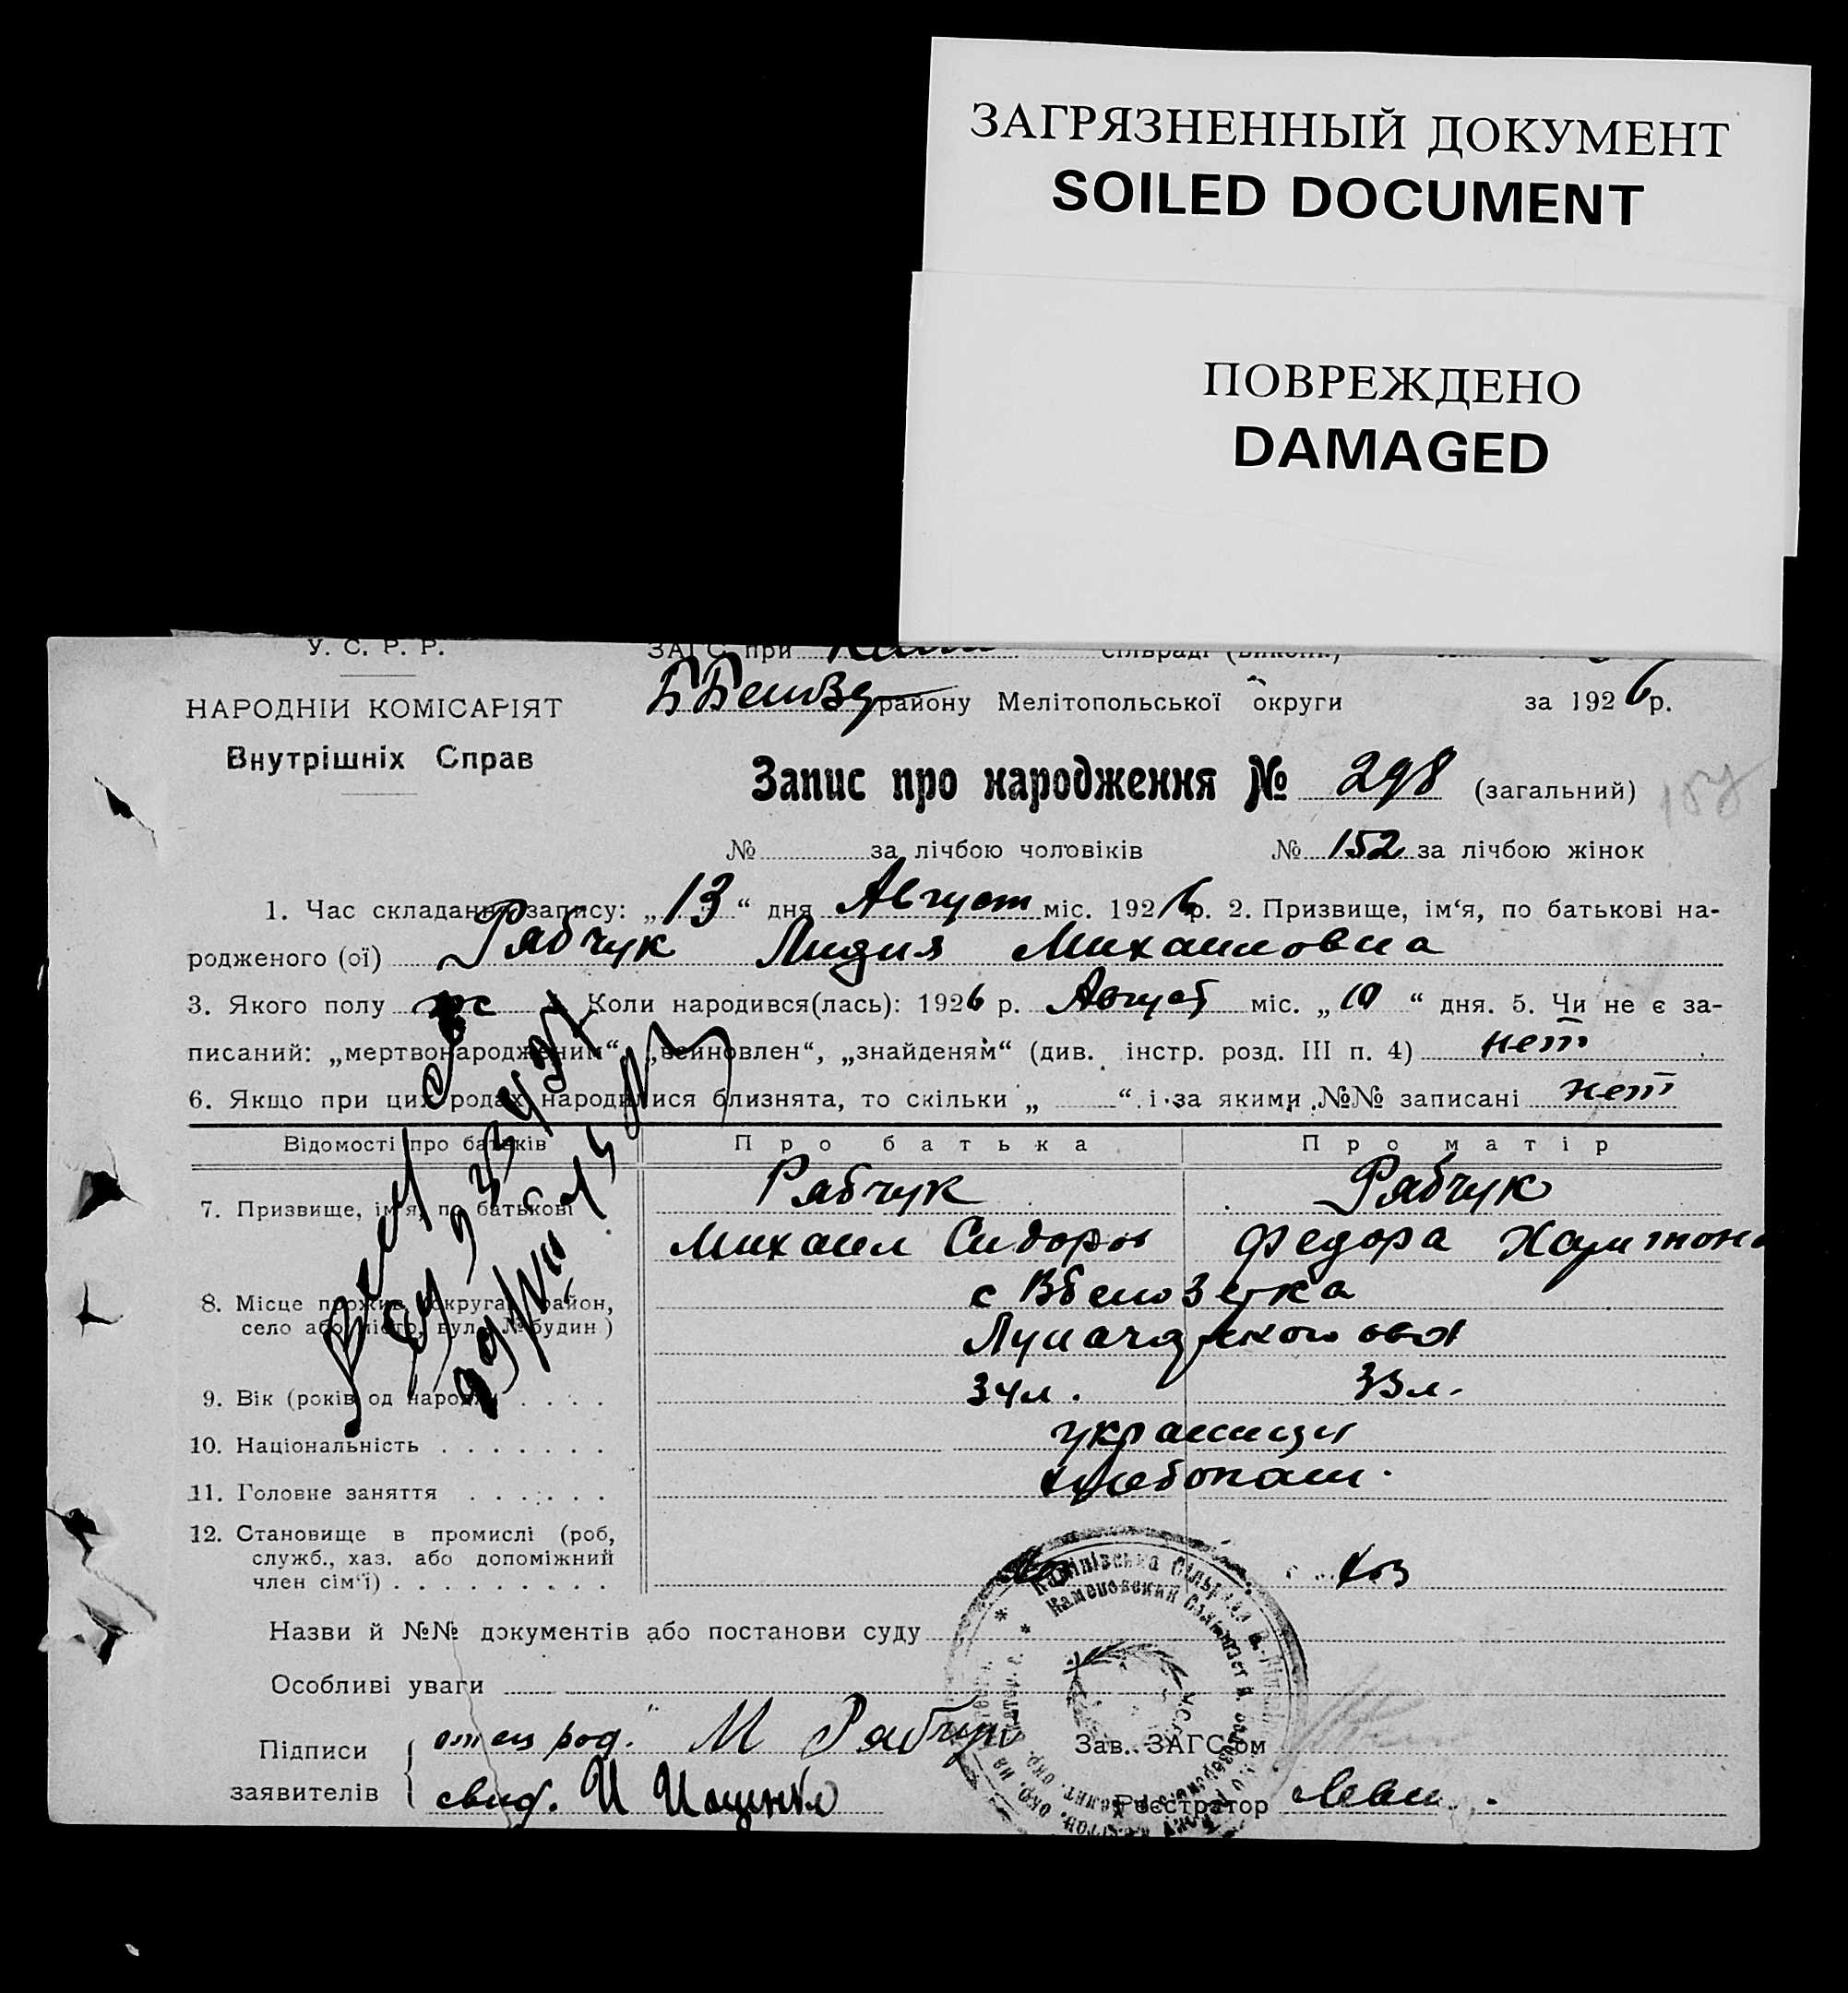 ЗАГРЯЗНЕННЫЙ ДОКУМЕНТ
SOILED DOCUMENT
ПОВРЕЖДЕНО
DAMAGED
У. С. Р. Р.
ЗАГС при
НАРОДНІЙ КОМІСАРІЯТ
району Мелітопольської округи за 1926 р.
Внутрішніх Справ
Запис про народження № 298 (загальний)
№ за лічбою чоловіків № 152 за лічбою жінок
1. Час складання запису: „13“ дня Август міс. 1926 р. 2. Призвище, ім‘я, по батькові на-
родженого (ої) Рябчук Лидия Михаиловна
3. Якого полу Коли народився(лась): 1926 р. Август міс. „10“ дня. 5. Чи не є за-
писаний: „мертвонародженим“, „всиновлен“, „знайденям“ (див. інстр. розд. III п. 4) нет
6. Якщо при цих родах народилися близнята, то скільки „ “ і за якими №№ записані нет
Відомості про батьків Про батька Про матір
7. Призвище, ім‘я, по батькові Рябчук Рябчук
Михаил Сидоров Федора Харитон
8. Місце прожив. (округа, район,
село або місто, вул., № будин)
9. Вік (років од народж) 34 л. 33 л.
10. Національність украинцы
11. Головне заняття хлебопаш.
12. Становище в промислі (роб,
служб., хаз. або допоміжний
член сім‘ї) хоз
Назви й №№ документів або постанови суду
Особливі уваги
Підписи отец род. М Рябчук Зав. ЗАГС‘ом
заявителів свид. И Реєстратор
Кам‘янівська Сільрада
Каменовский Сельсовет